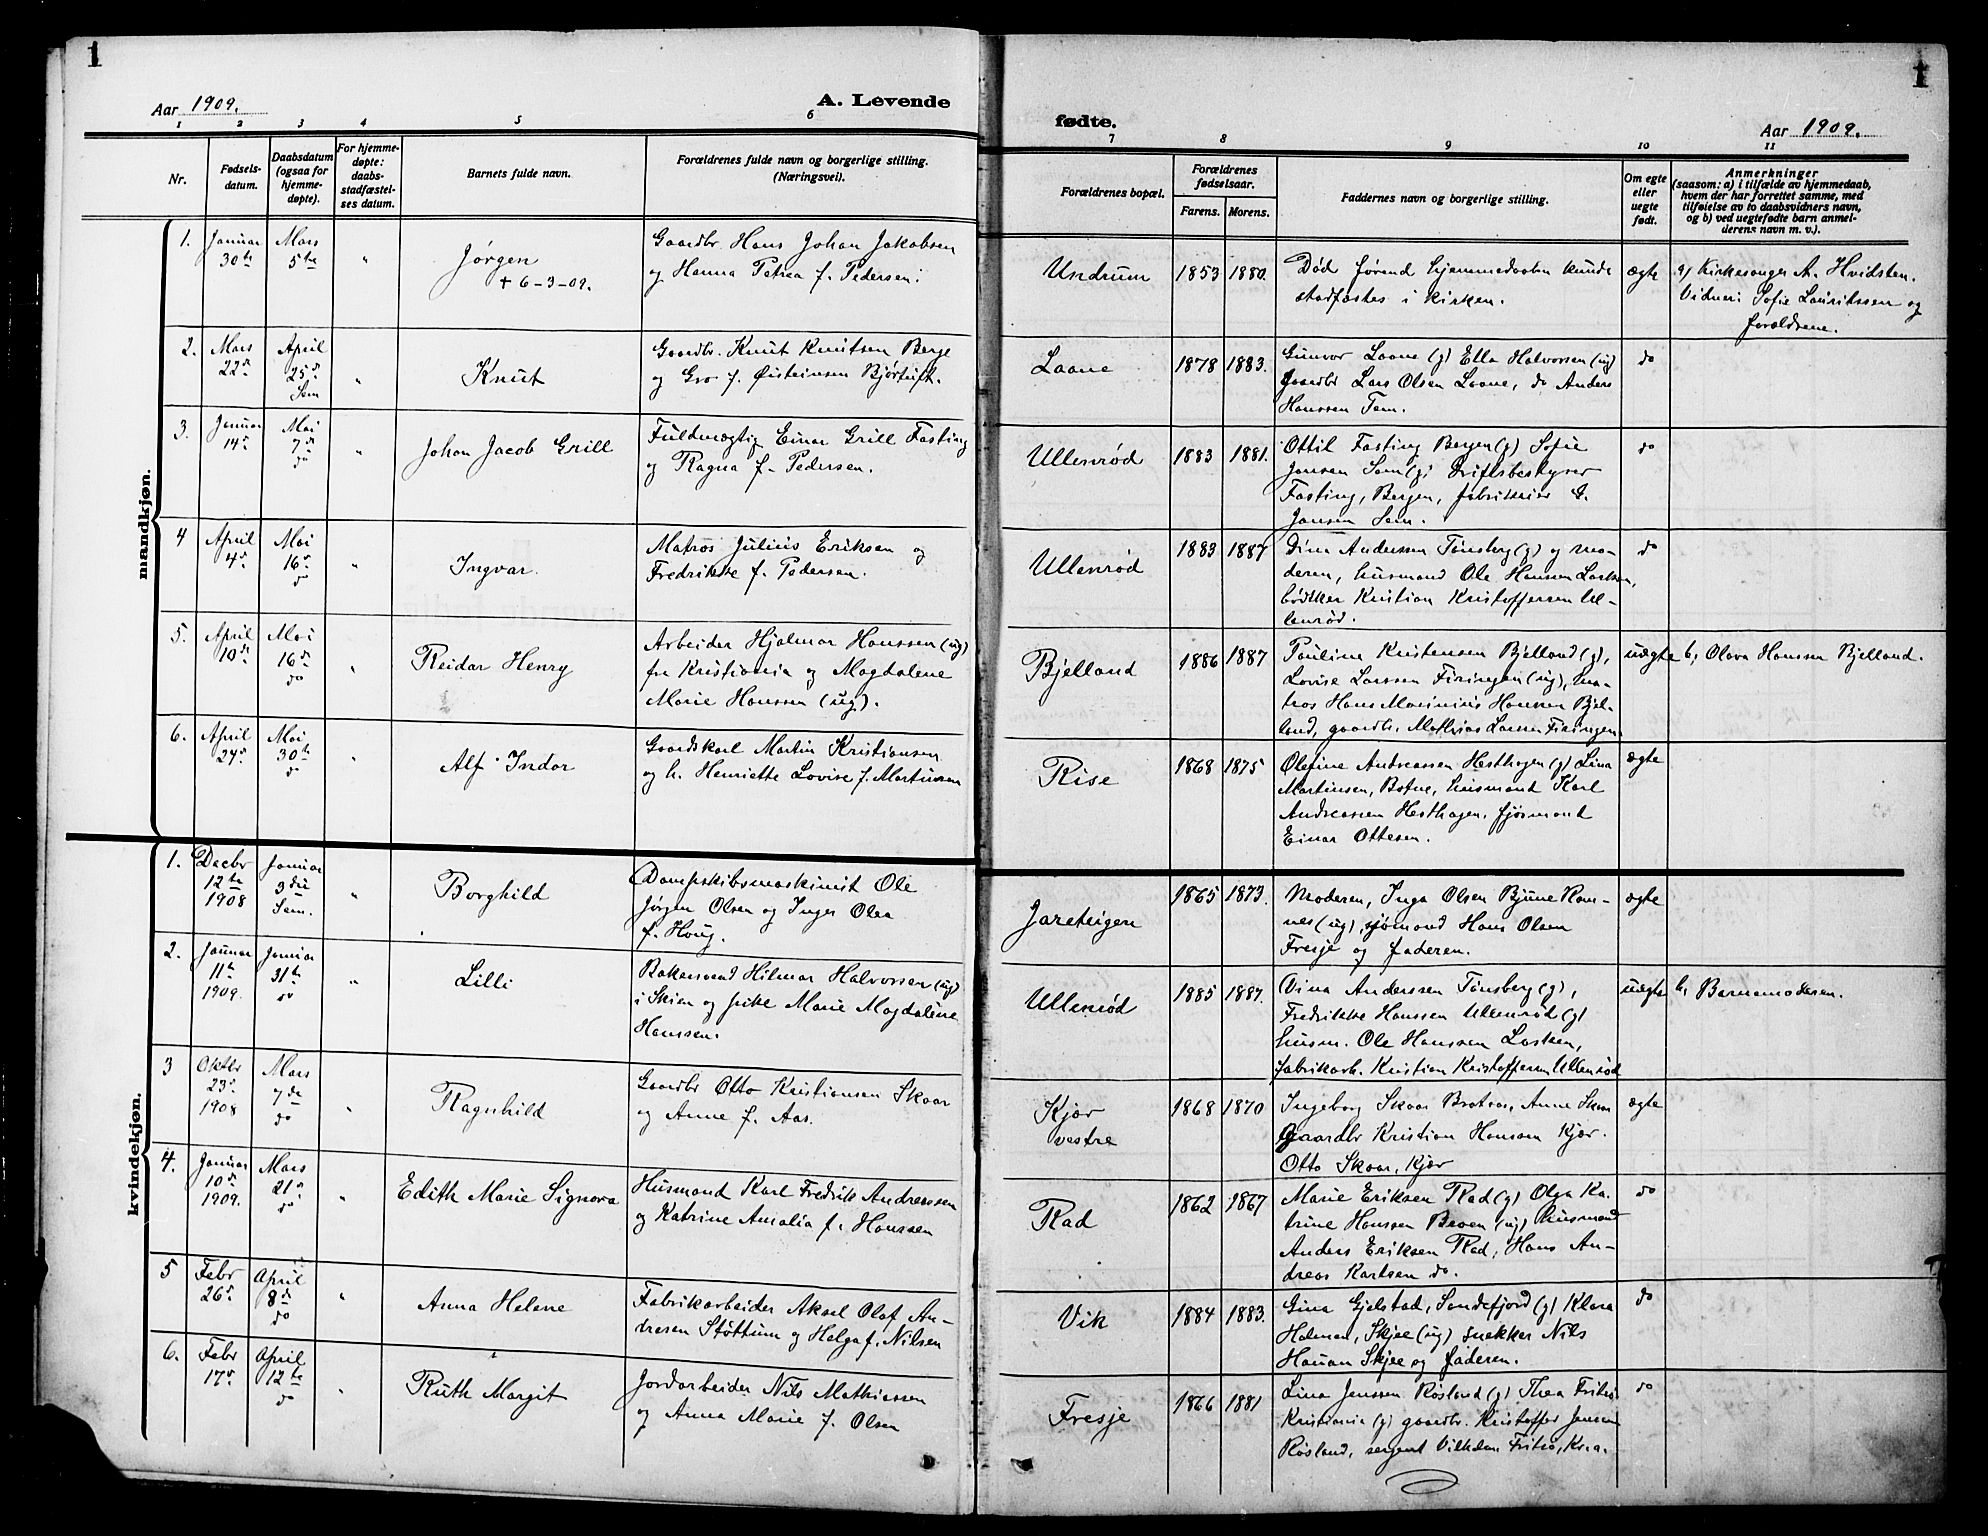 1
Aar 1909.
A. Levende
1 2 3 4 5 6
Nr.
Fødsels-
datum.
Daabsdatum
(ogsaa for
hjemme-
døpte).
For hjemme-
døpte:
daabs-
stadfæstel-
ses datum.
Barnets fulde navn.
Forældrenes fulde navn og borgerlige stilling.
(Næringsvei).
mandkjøn.
1. Januar 30te
Mars 5te
"
Jørgen
+ 6-3-09.
Gaardbr. Hans Johan Jakobsen
og Hanna Petrea f. Pedersen.
2. Mars 22de
April 25de Sem
"
Knut
Gaardbr. Knut Knutsen Berge
og Gro f. Øisteinsen Bjørtuft.
3. Januar 14de
Mai 7de do
"
Johan Jacob Grill
Fuldmægtig Einar Grill Fasting
og Ragna f. Pedersen.
4 April 4de
Mai 16de do
"
Ingvar.
Matros Julius Eriksen og
Fredrikke f. Pedersen.
5. April 10de
Mai 16de do
"
Reidar Henry
Arbeider Hjalmar Hanssen (ug)
fra Kristiania og Magdalene
Marie Hanssen (ug).
6. April 24de
Mai 30te do
"
Alf Indar
Gaardskarl Martin Kristiansen
og h. Henriette Lovise f. Martinsen
kvindekjøn.
1. Decbr 12te 1908
Januar 3die Sem.
"
Borghild
Dampskibsmaskinist Ole
Jørgen Olsen og Inger Olea
f. Houg.
2. Januar 11te 1909.
Januar 31te do
"
Lilli
Bakersvend Hilmar Halvorsen (ug)
i Skien og pike Marie Magdalene
Hanssen.
3 Oktbr 23de 1908
Mars 7de do
"
Ragnhild
Gaardbr Otto Kristiansen Skaar
og Anne f. Aas.
4. Januar 10de 1909.
Mars 21de do
"
Edith Marie Signora
Husmand Karl Fredrik Andreasen
og Katrine Amalia f. Hanssen
5 Febr 26de
April 8de do
"
Anna Helene
Fabrikarbeider Aksel Olaf An-
dresen Støttum og Helga f. Nilsen
6. Febr 17de
April 12te do
"
Ruth Margit
Jordarbeider Nils Mathiassen
og Anna Marie f. Olsen
1
fødte.
Aar 1909.
7 8 9 10 11
Forældrenes bopæl.
Forældrenes
fødselsaar.
Farens. Morens.
Faddernes navn og borgerlige stilling.
Om egte
eller
uegte
født.
Anmerkninger
(saasom: a) i tilfælde av hjemmedaab,
hvem der har forrettet samme, med
tilføielse av to daabsvidners navn,
og b) ved uegtefødte barn anmel-
derens navn m. v.).
Undrum
1853 1880.
Død førend hjemmedaaben kunde
stadfæstes i kirken.
ægte
a) Kirkesanger A. Hvidsten.
Vidner: Sofie Lauritssen og
forældrene.
Laane
1878 1883.
Gunvor Laane (g) Ella Halvorsen (ug)
Gaardbr Lars Olsen Laane, do Anders
Hanssen Tem.
do
Ullenrød
1883 1881.
Ottil Fasting Bergen (g) Sofie
Jansen Sem (g) Driftsbestyrer
Fasting, Bergen, fabrikeier G.
Jansen Sem.
do
Ullenrød
1883 1887
Dina Anderssen Tønsberg (g) og mo-
deren, husmand Ole Hansen Lasken,
bødtker Kristian Kristoffersen Ul-
lenrød.
do
Bjelland
1886 1887
Pauline Kristensen Bjelland (g),
Lovise Larssen Firingen (ug), ma-
tros Hans Marinius Hansen Bjel-
land, gaardbr. Mathias Larsen Firingen.
uægte
b, Olava Hansen Bjelland.
Rise
1868 1875
Olefine Andreassen Hesthagen (g) Lina
Martinsen, Botne, husmand Karl
Andreassen Hesthagen, fjørmand
Einar Ottesen.
ægte
Jareteigen
1865 1873.
Moderen, Inga Olsen Bjune Ram-
nes (ug), sjømand Hans Olsen
Fresje og faderen.
ægte
Ullenrød
1885 1887.
Dina Anderssen Tønsberg (g),
Fredrikke Hanssen Ullenrød (g)
husm. Ole Hanssen Lasken,
fabrikarb. Kristian Kristoffersen Ullenrød
uægte
b, Barnemoderen.
Kjær
vestre
1868 1870
Ingeborg Skaar Brotnø, Anne Skaar
Gaardbr Kristian Hansen Kjær.
Otto Skaar, Kjær
ægte
Rad
1862 1867
Marie Eriksen Rad (g) Olga Ka-
trine Hanssen Bruen (ug) husmand
Anders Eriksen Rad, Hans An-
dreas Karlsen do.
do
Vik
1884 1883.
Gina Gjelstad, Sandefjord (g) Klara
Holman, Skjee (ug) snekker Nils
Hauan Skjee og faderen.
do
Fresje
1866 1881
Lina Janssen Røsland (g) Thea Fritsø
Kristiania (g) gaardbr. Kristoffer Jansen
Røsland, sergent Vilhelm Fritsø, Kr.a.
do